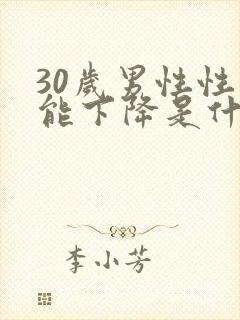 30歲男性性
能下降是什
李小芳